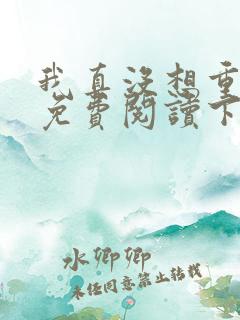 我真沒想重
免費閱讀下
水卿卿
未经同意禁止转载